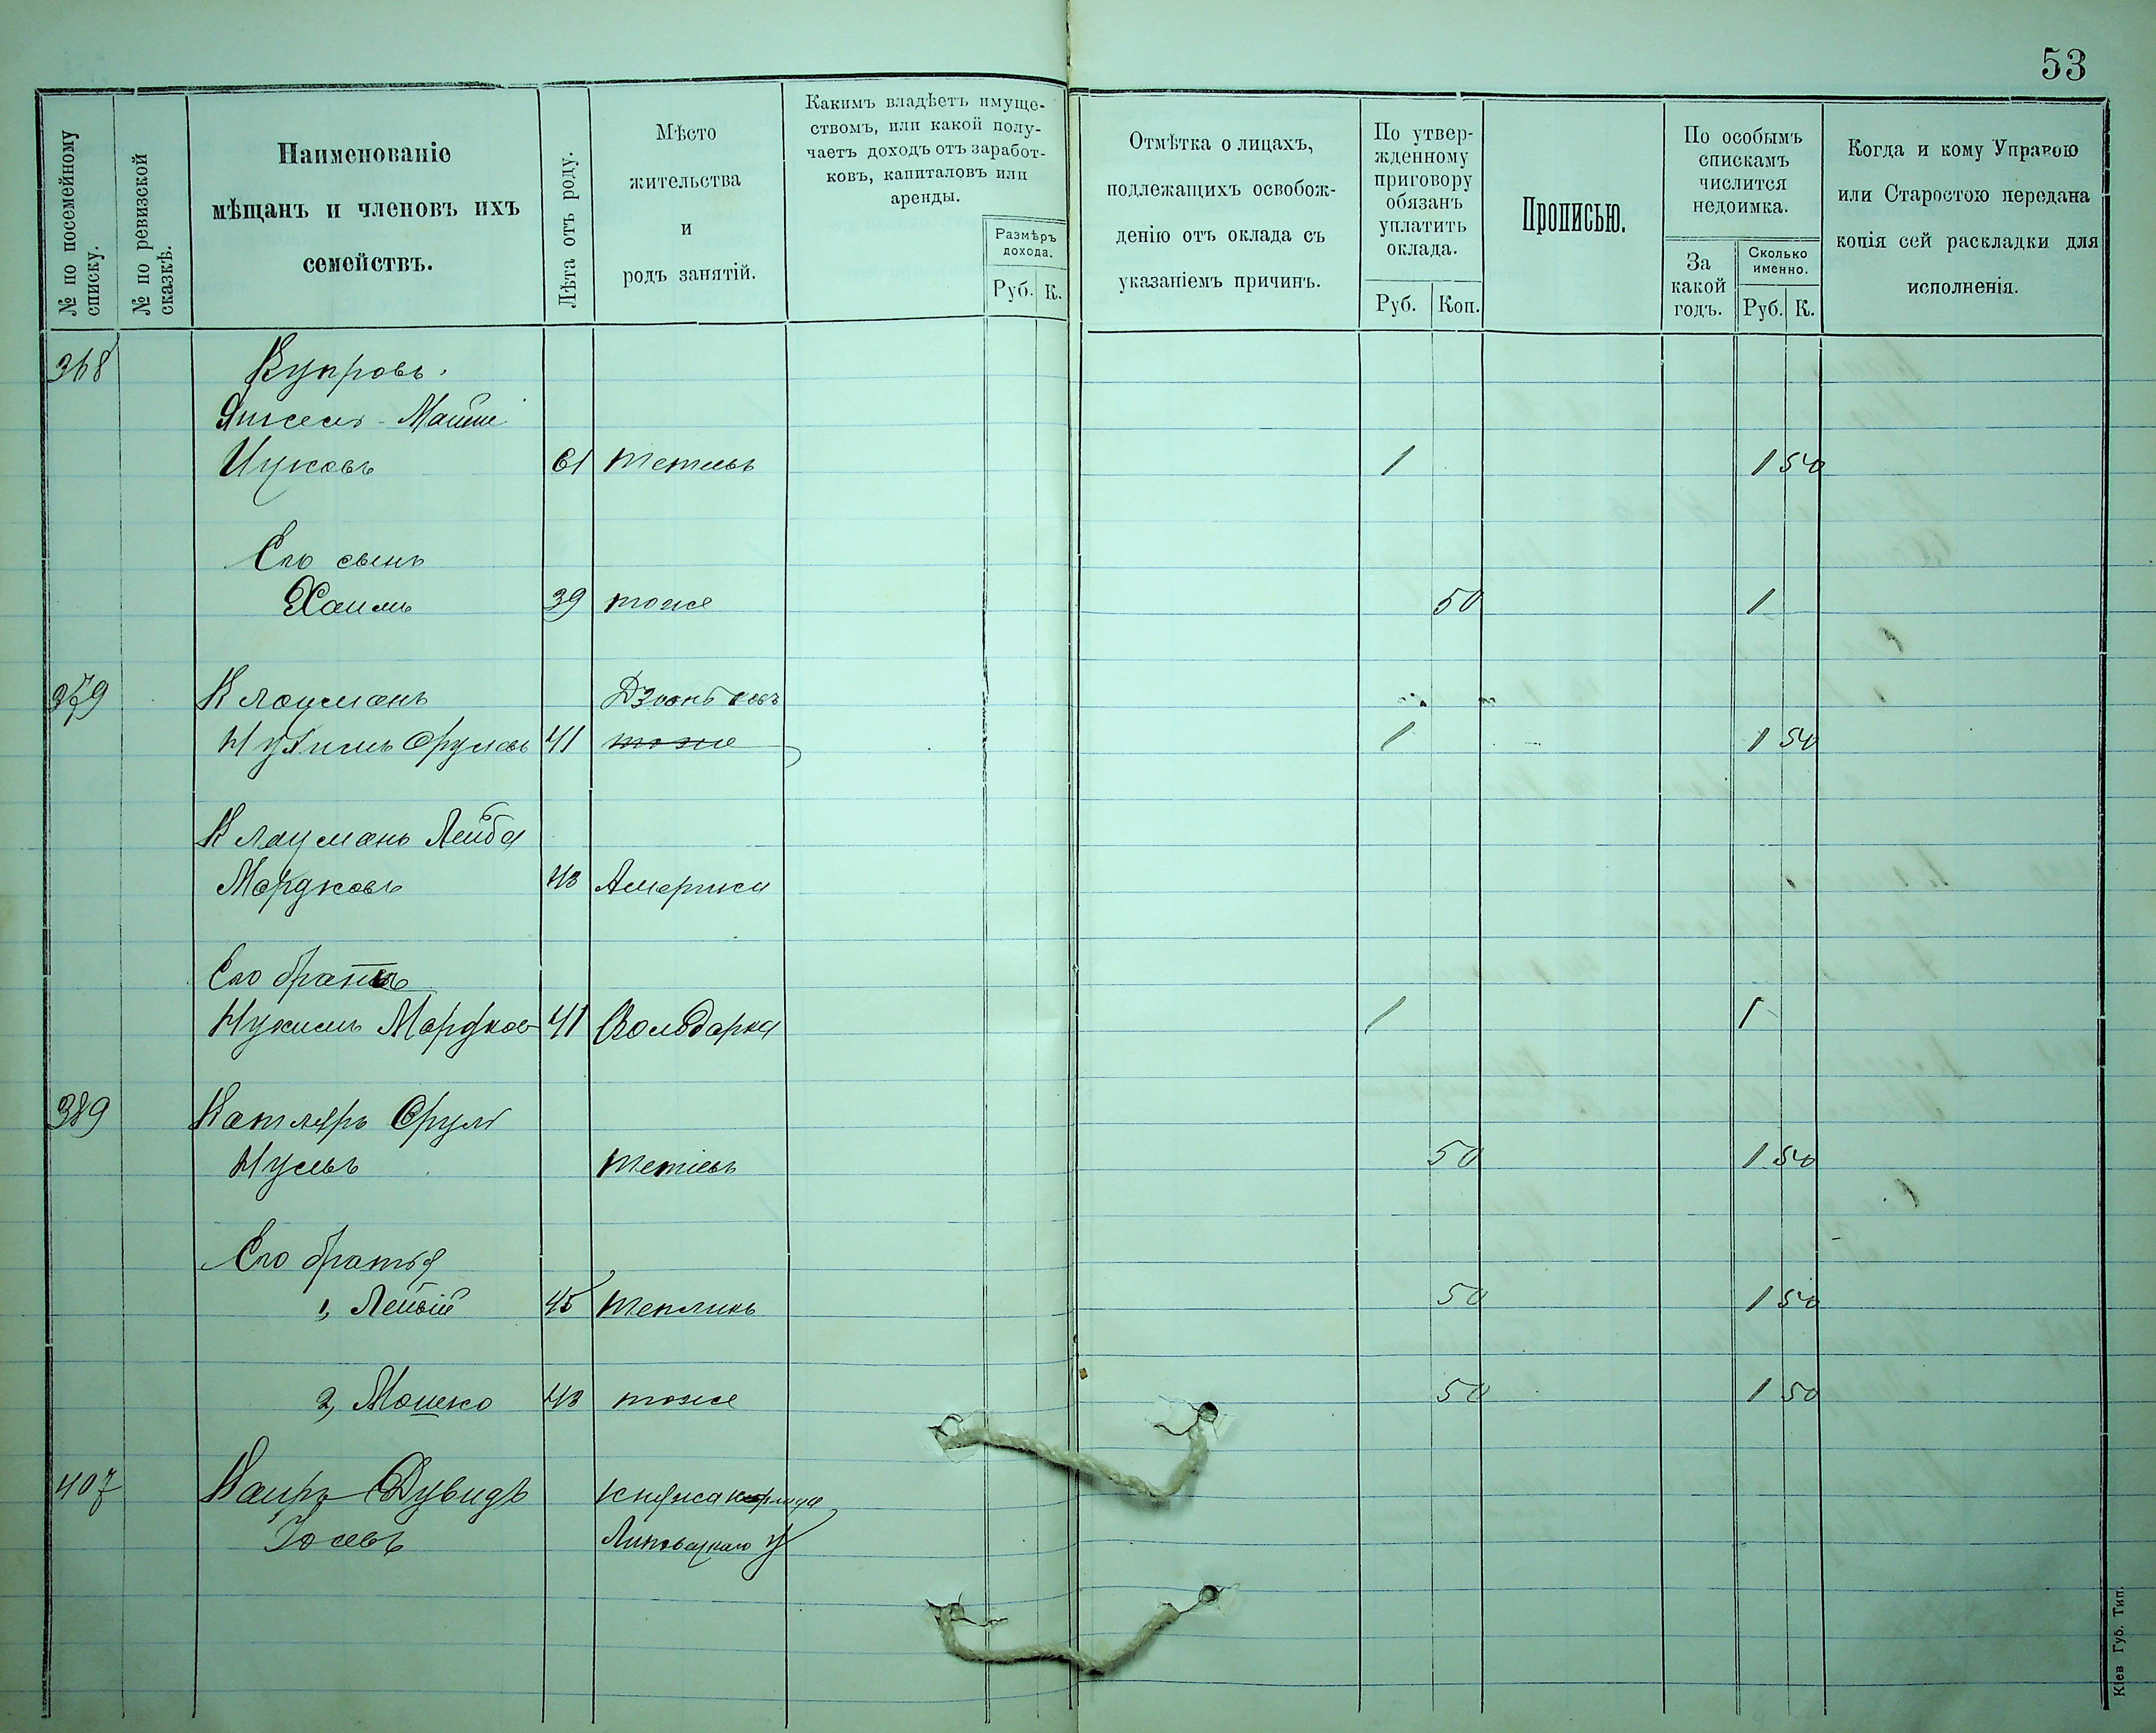 53
№ по посемейному списку.
№ по ревизской сказкѣ.
Наименованіе
мѣщанъ и членовъ ихъ
семействъ.
Лѣта отъ роду.
Мѣсто
жительства
и
родъ занятій.
Какимъ владѣетъ имуще-
ствомъ, или какой полу-
чаетъ доходъ отъ заработ-
ковъ, капиталовъ или
аренды.
Размѣръ
дохода.
Руб. К.
Отмѣтка о лицахъ,
подлежащихъ освобож-
денію отъ оклада съ
указаніемъ причинъ.
По утвер-
жденному
приговору
обязанъ
уплатить
оклада.
Руб. Коп.
Прописью.
По особымъ
спискамъ
числится
недоимка.
За
какой
годъ.
Сколько
именно.
Руб. К.
Когда и кому Управою
или Старостою передана
копія сей раскладки для
исполненія.
368 Купровъ.
Ицковъ 61 Тетіевъ 1 1 50
Его сынъ
Хаимъ 39 тоже 50 1
379 Клоцманъ
Срулевъ 41 тоже 1 1 50
Клоцманъ Лейба
Мордковъ 43 Америка
Его братъ
Нухимъ Мордков 41 Володарка 1 1
389 Котляръ Сруль
Нусовъ Тетіевъ 50 1 50
Его братья
1, Лейбій 45 Тепликъ 50 1 50
2, Мошко 43 тоже 50 1 50
407 Каиръ Дувидъ Княжа Криница
Іосевъ Липовецкаго у
Кіев Губ. Тип.